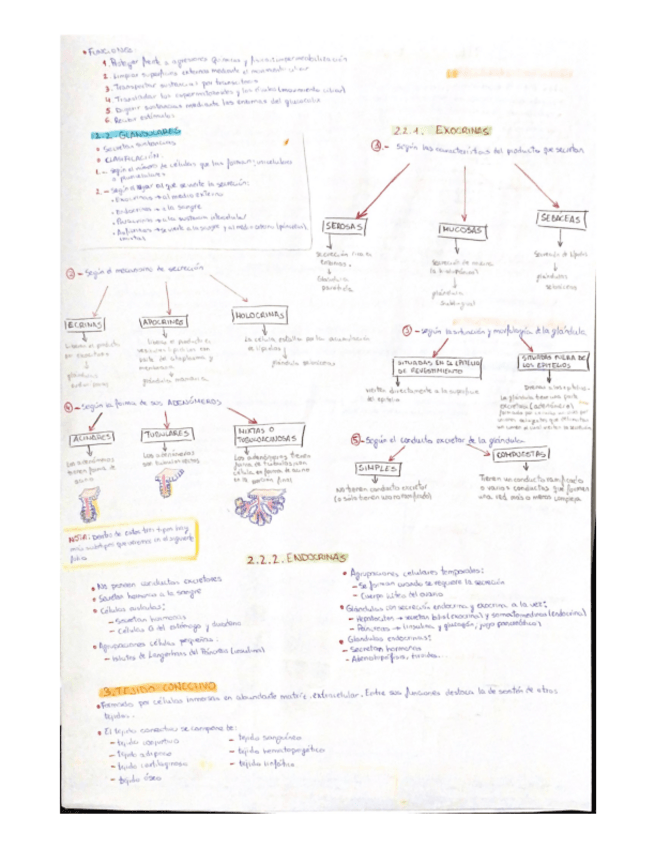 • FUNCIONES:
1. Proteger frente a agresiones químicas y físicas, impermeabilización
2. Limpiar superficies externas mediante el movimiento ciliar
3. Transportar sustancias por
4. Trasladar los espermatozoides y los (movimiento ciliar)
5. Digerir sustancias mediante las enzimas del glucocálix
6. estímulos
2.2. GLANDULARES
• Secretan sustancias
• CLASIFICACIÓN:
1. - según el número de células que las forman: unicelulares
o pluricelulares
2. - según el lugar al que se vierte la secreción:
• Exocrinas → al medio externo
• Endocrinas → a la sangre
• Paracrinas → a la sustancia
→ se vierte a la sangre y al medio externo (páncreas)
2.2.1. EXOCRINAS
① - según las características del producto que secretan
SEROSAS
MUCOSAS
SEBÁCEAS
secreción rica en
enzimas.
Glándula
parótida
secreción de moco
glándula
sublingual
Secreción de lípidos
glándulas
sebáceas
② - Según el mecanismo de secreción
ECRINAS
APOCRINAS
HOLOCRINAS
Liberan el producto
por exocitosis
glándulas
Liberan el producto
parte de citoplasma y
membrana
glándula mamaria
La célula estalla por la acumulación
de lípidos
glándula sebácea
③ - según la situación y morfología de la glándula
SITUADAS EN EL EPITELIO
DE REVESTIMIENTO
SITUADAS FUERA DE
LOS EPITELIOS
vierten directamente a la superficie
del epitelio
La glándula tiene una parte
excretora (adenómero)
④ - Según la forma de sus ADENÓMEROS
ACINARES
TUBULARES
MIXTAS O
TUBULOACINOSAS
Los adenómeros
tienen forma de
acino
Los adenómeros
son tubos rectos
Los adenómeros tienen
forma de túbulos con
células en forma de acino
en la porción final
⑤ - Según el conducto excretor de la glándula
SIMPLES
COMPUESTAS
No tienen conducto excretor
(o solo tienen uno no ramificado)
Tienen un conducto ramificado
o varios conductos que forman
una red más o menos compleja
NOTA: Dentro de estos tres tipos hay
más subtipos que veremos en el siguiente
folio
2.2.2. ENDOCRINAS
• No poseen conductos excretores
• Secretan hormonas a la sangre
• Células aisladas:
- Secretan hormonas
- Células G del estómago y duodeno
• Agrupaciones células pequeñas:
- Islotes de Langerhans del Páncreas (insulina)
• Agrupaciones celulares temporales:
- Se forman cuando se requiere la secreción
- Cuerpo lúteo del ovario
• Glándulas con secreción endocrina y exocrina a la vez:
- Hepatocitos → secretan bilis (exocrina) y somatomedinas (endocrina)
- Páncreas → insulina y glucagón, jugo pancreático)
• Glándulas endocrinas:
- Secretan hormonas
- Adenohipófisis, tiroides.
3. TEJIDO CONECTIVO
• Formado por células inmersas en abundante matriz extracelular. Entre sus funciones destaca la de sostén de otros
tejidos.
• El tejido conectivo se compone de:
- tejido conjuntivo
- tejido adiposo
- tejido cartilaginoso
- tejido óseo
- tejido sanguíneo
- tejido hematopoyético
- tejido linfático